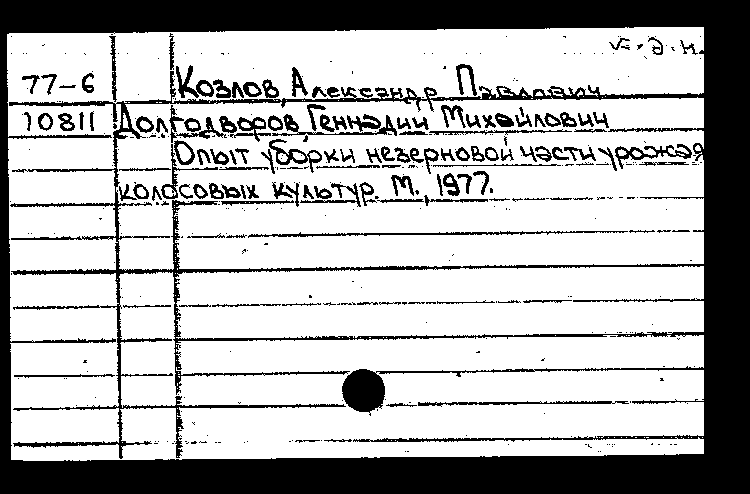 77-6 Козлов, Александр Павлович
10811 Долгодворов, Геннадий Михайлович
Опыт уборки незерновой части урожая
колосовых культур. М., 1977.